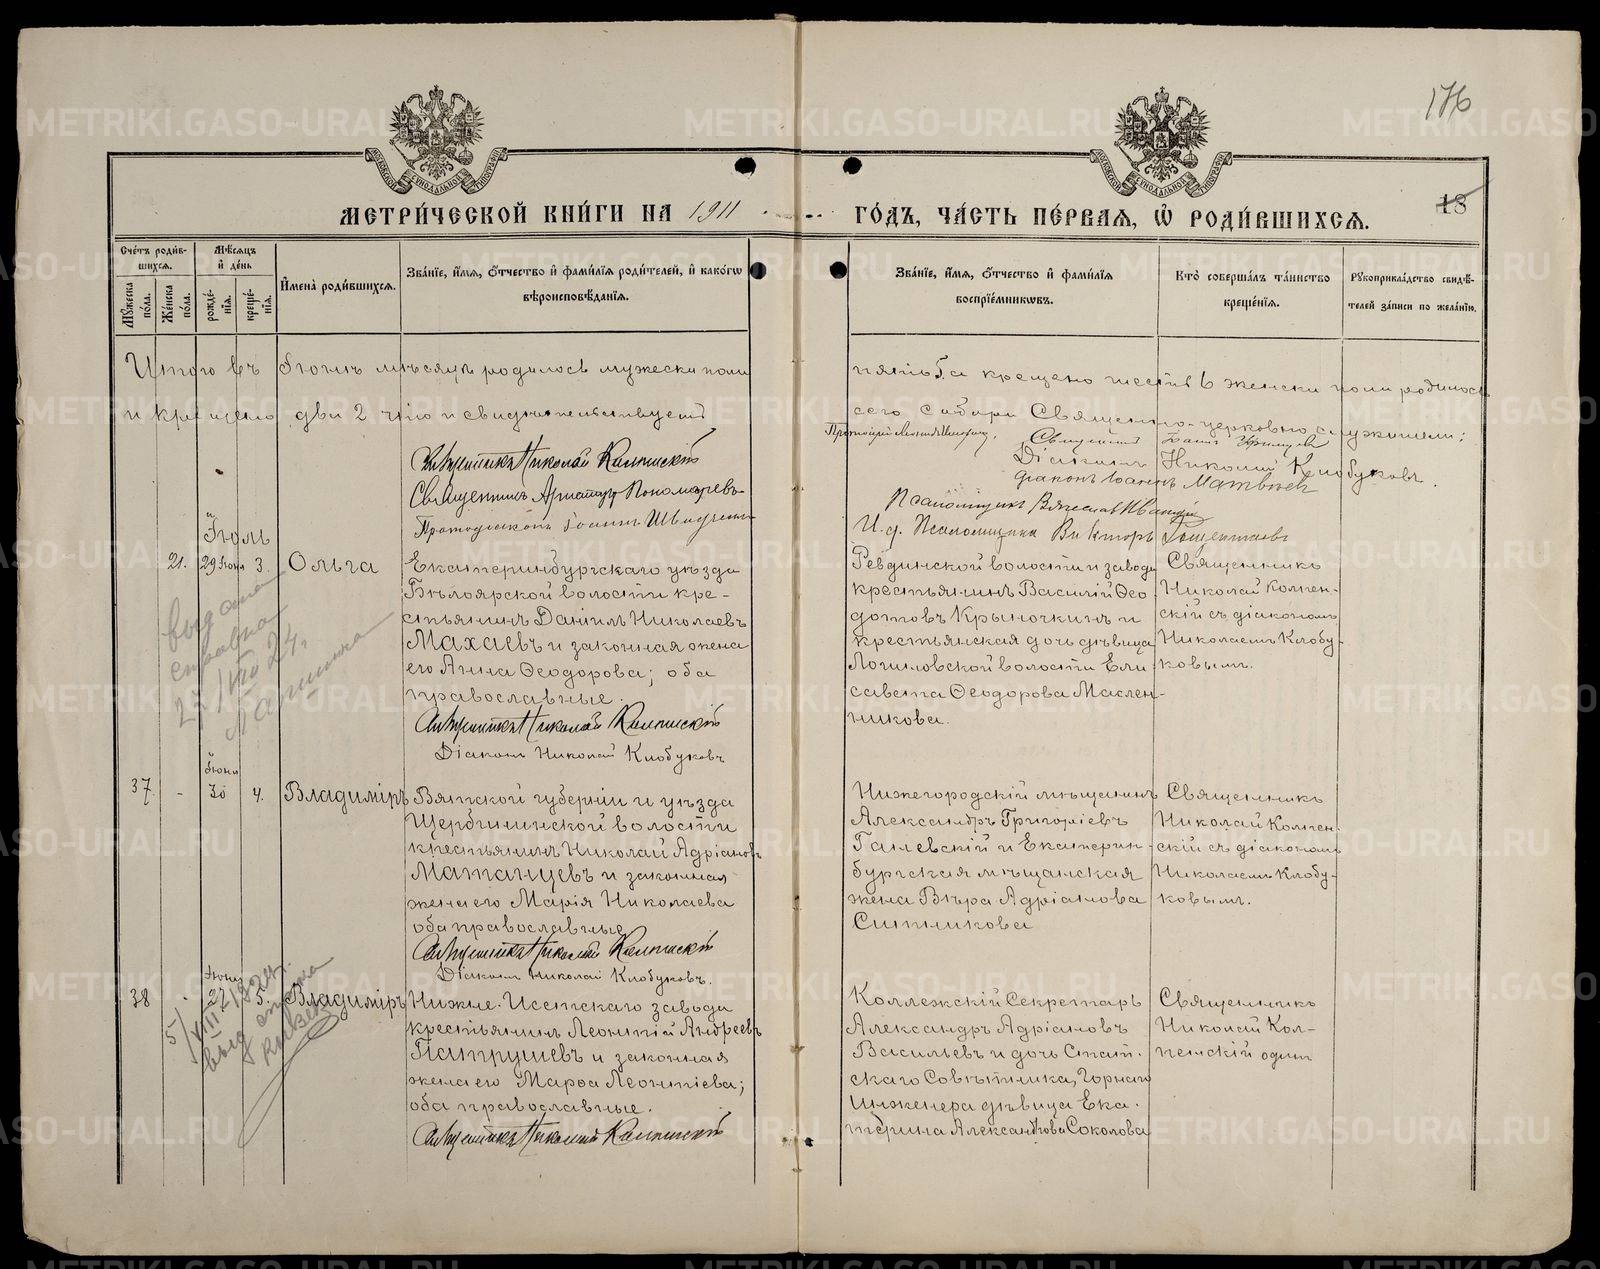 176
МЕТРИ́ЧЕСКОЙ КНИ́ГИ НА 1911 ГО́ДЪ, ЧА́СТЬ ПЕ́РВАЯ, Ѡ҆ РОДИ́ВШИХСЯ.
18
Сче́тъ роди́вшихся.
Му́жеска по́ла.
Же́нска по́ла.
Мѣ́сяцъ и҆ де́нь
рожде́нїя.
креще́нїя.
И҆мена̀ роди́вшихся.
Зва́нїе, и҆́мя, ѻ҆́тчество и҆ фами́лїя роди́телей, и҆ како́гѡ вѣроисповѣ́данїя.
Зва́нїе, и҆́мя, ѻ҆́тчество и҆ фами́лїя воспрїе́мникѡвъ.
Кто̀ соверша́лъ та́инство креще́нїя.
Рукоприкла́дство свидѣ́телей за́писи по жела́нїю.
Итого въ Іюнѣ мѣсяцѣ родилось мужеска пола
пять 5 а крещено шесть 6 женска пола родилось
и крещено двѣ 2 что и свидѣтельствуетъ
сего собора Священно-церковно-служители:
Священникъ Николай Колпенскій
Священникъ Пономаревъ
Протодіаконъ Іоаннъ
Священникъ Іоаннъ
Діаконъ Николай Клобуковъ.
діаконъ Іоаннъ Матвѣевъ
Псаломщикъ Вячеславъ
И. д. Псаломщика Викторъ
Іюль
21. 29 Іюня 3. Ольга
Екатеринбургскаго уѣзда
Бѣлоярской волости кре-
стьянинъ Даніилъ Николаевъ
Махаевъ и законная жена
его Анна Ѳеодорова; оба
православные.
Священникъ Николай Колпенскій
Діаконъ Николай Клобуковъ
Ревдинской волости и завода
крестьянинъ Василій Ѳео
дотовъ Крыночкинъ и
крестьянская дочь дѣвица
Логиловской волости Ели
савета Ѳеодорова Маслен-
никова.
Священникъ
Николай Колпен-
скій съ діакономъ
Николаемъ Клобу-
ковымъ.
выдана
справка
25/VIII 24 г.
37. - Іюня 30 4. Владиміръ
Вятской губерніи и уѣзда
Щербининской волости
крестьянинъ Николай Адріановъ
Матанцевъ и законная
жена его Марія Николаева
оба православные
Священникъ Николай Колпенскій
Діаконъ Николай Клобуковъ.
Нижегородскій мѣщанинъ
Александръ Григоріевъ
Гаулевскій и Екатерин-
бургская мѣщанская
жена Вѣра Адріанова
Ситникова
Священникъ
Николай Колпен-
скій съ діакономъ
Николаемъ Клобу-
ковымъ.
38 - Іюня 27 5. Владиміръ
Нижне-Исетскаго завода
крестьянинъ Леонтій Андреевъ
Патрушевъ и законная
жена его Марѳа Леонтіева;
оба православные.
Священникъ Николай Колпенскій
Коллежскій Секретарь
Александръ Адріановъ
Васильевъ и дочь Стат-
скаго Совѣтника, Горнаго
Инженера дѣвица Ека-
терина Александрова Соколова
Священникъ
Николай Кол-
пенскій одинъ
5/VIII 1924 г.
METRIKI.GASO-URAL.RU